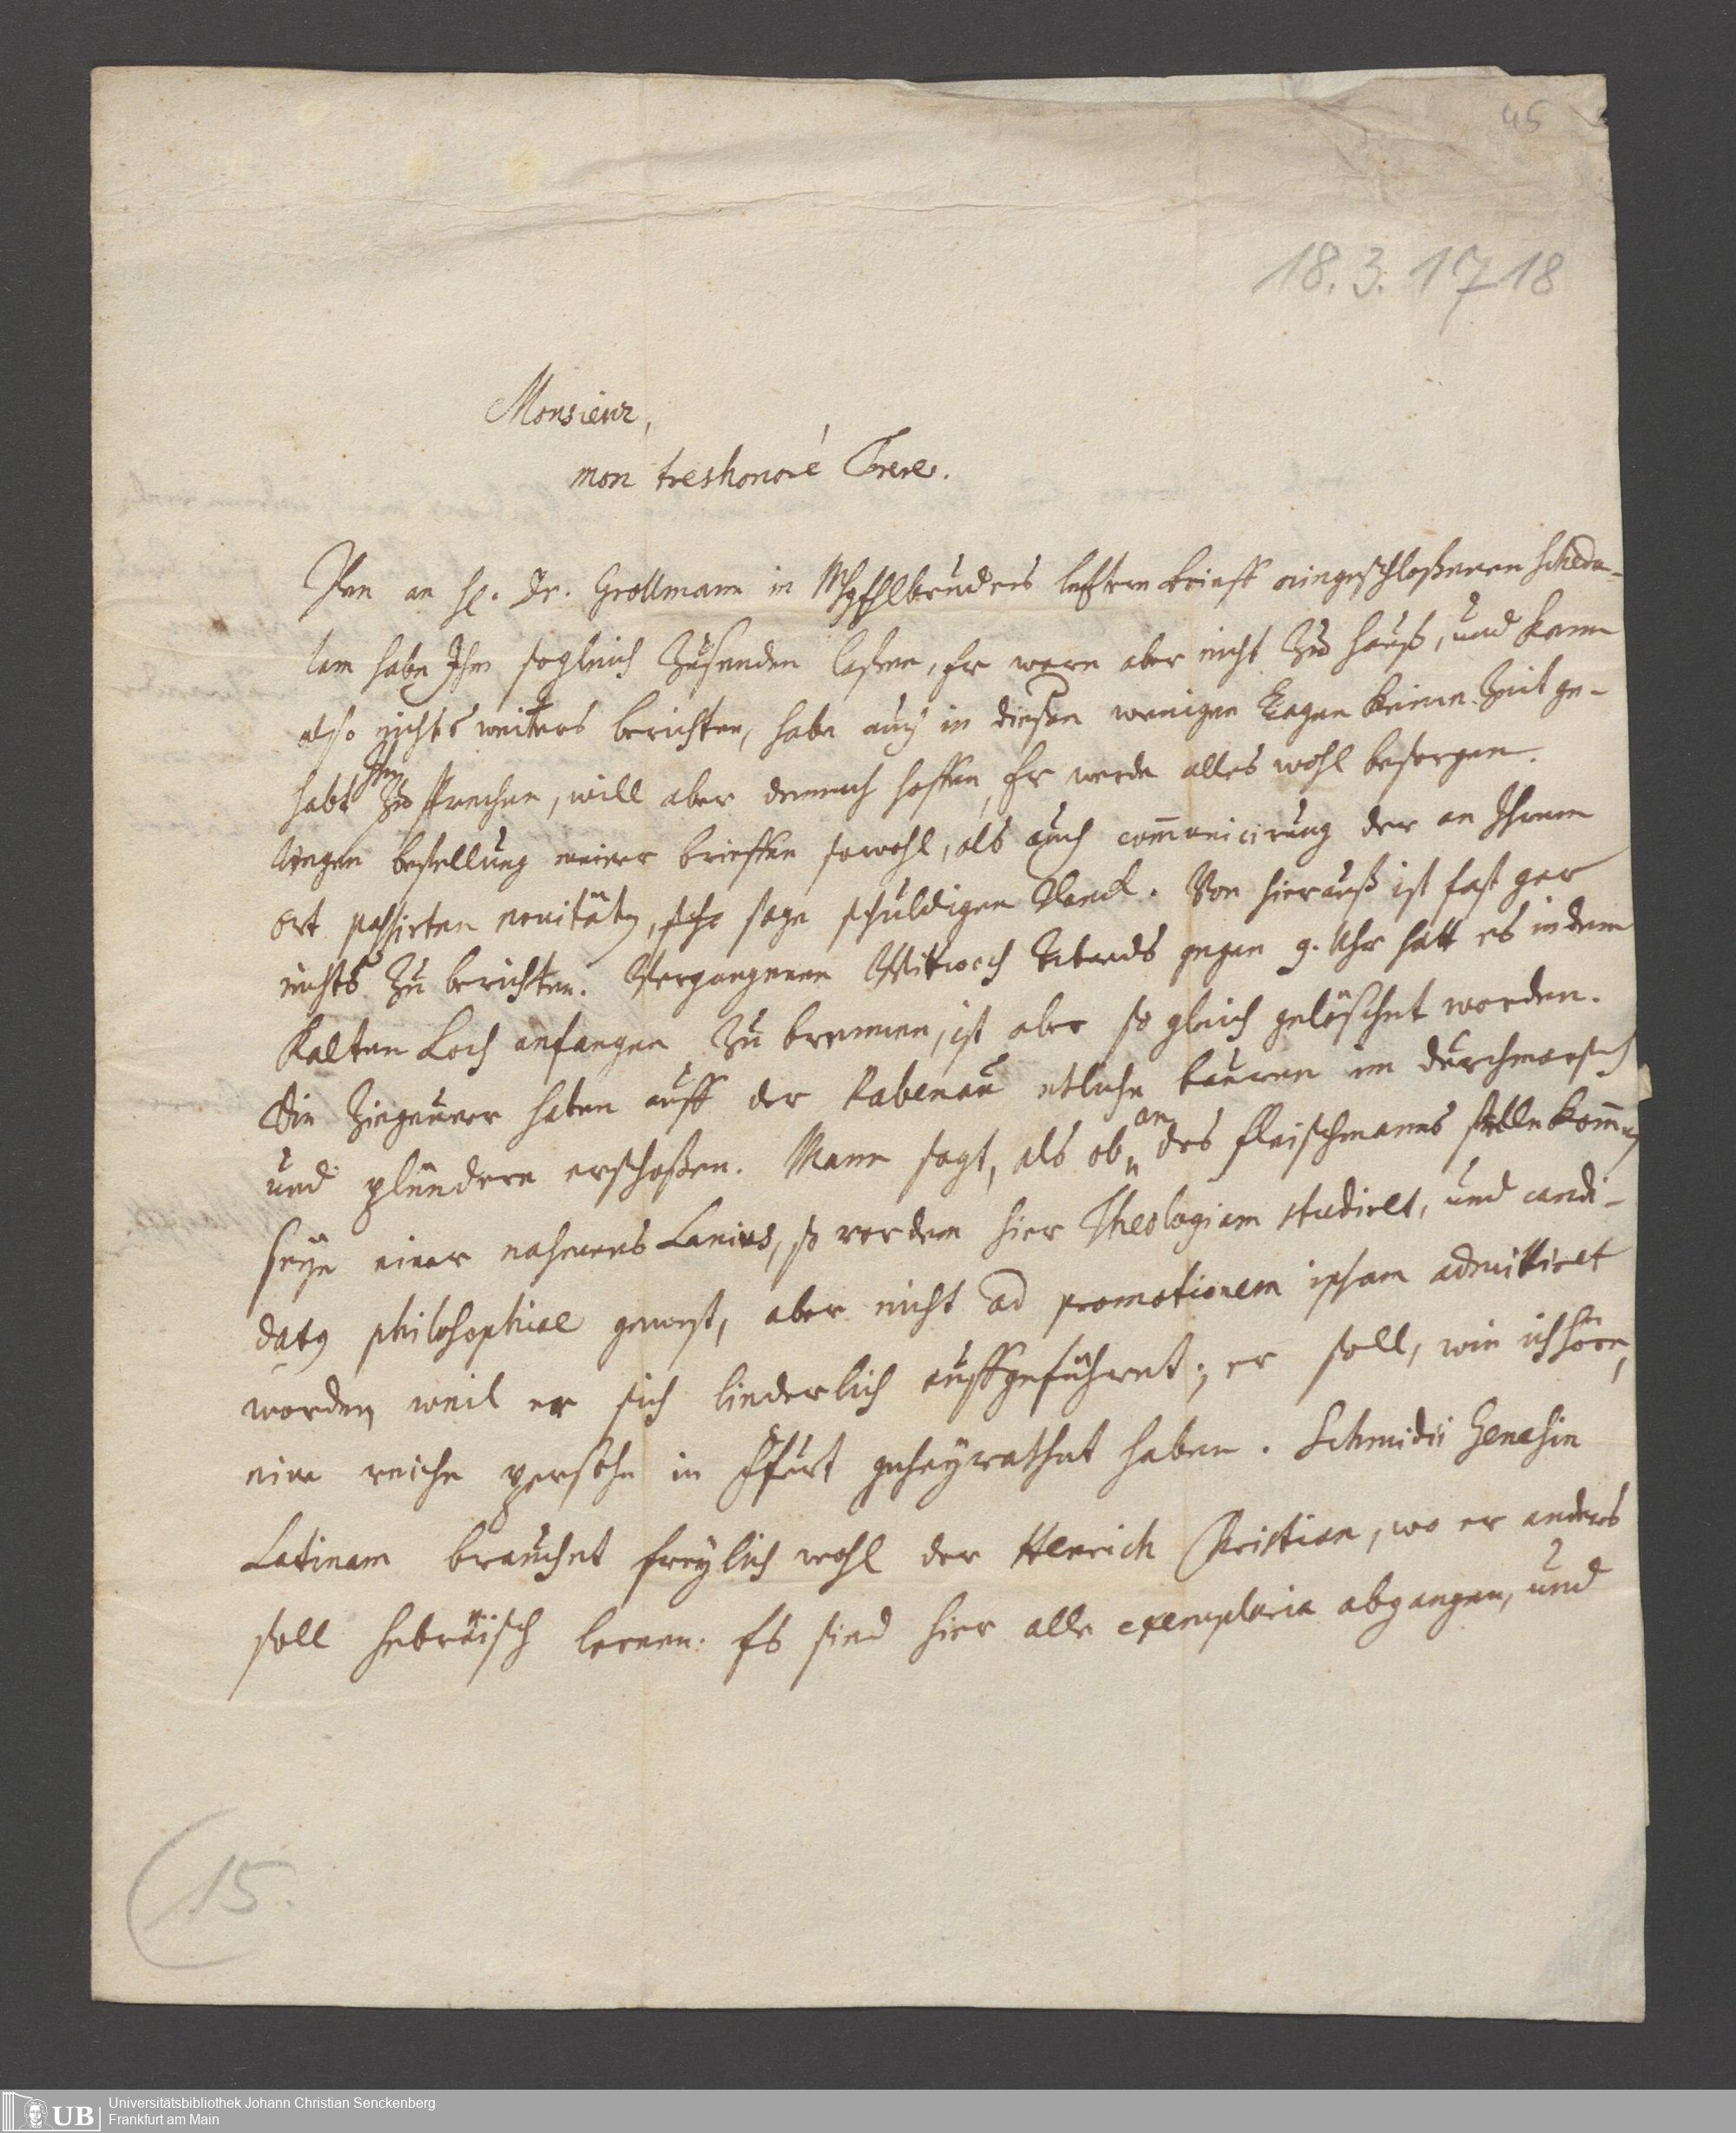 45
18. 3. 1718
Monsieur,
mon treshonoré Frere.
Den an H. Dr. Grollmann in Mhgshlbruders letztern brieff eingeschloßenen Scheda-
lam habe Ihm sogleich zusenden laßen, Er ware aber nicht zu hauß, und kann
also nichts weiters berichten, habe auch in dießen wenigen Tagen keine Zeit ge-
habt Ihn zu sprechen, will aber dennoch hoffen, Er werde alles wohl besorgen.
Wegen bestellung meiner brieffen sowohl, als auch com̄unicirung der an Ihrem
ort passirten novitäten, sage schuldigen Danck. Von hierauß ist fast gar
nichts zu berichten. Vergangenen Mittwoch Abends gegen 9. Uhr hatt es in dem
Kalten Loch anfangen zu brennen, ist aber so gleich gelöschet worden.
Die Ziegeuner haben auff der Rabenau etliche bauren im durchmarsch
und plündern erschoßen. Mann sagt, als ob an des Fleischmanns stelle kom̄en
seye einer nahmens Lanius, so vordem hier Theologiam studiret, und candi-
datus philosophiae gewest, aber nicht ad promotionem ipsam admittiret
worden weil er sich liederlich auffgeführet; er soll, wie ich höre,
eine reiche persohn in Ffurt geheyrathet haben. Schmidii Genesin
Latinam brauchet freylich wohl der Henrich Christian, wo er anders
soll hebräisch lernen. Es sind hier alle exemplaria abgangen, und
(15.
UB
Universitätsbibliothek Johann Christian Senckenberg
Frankfurt am Main